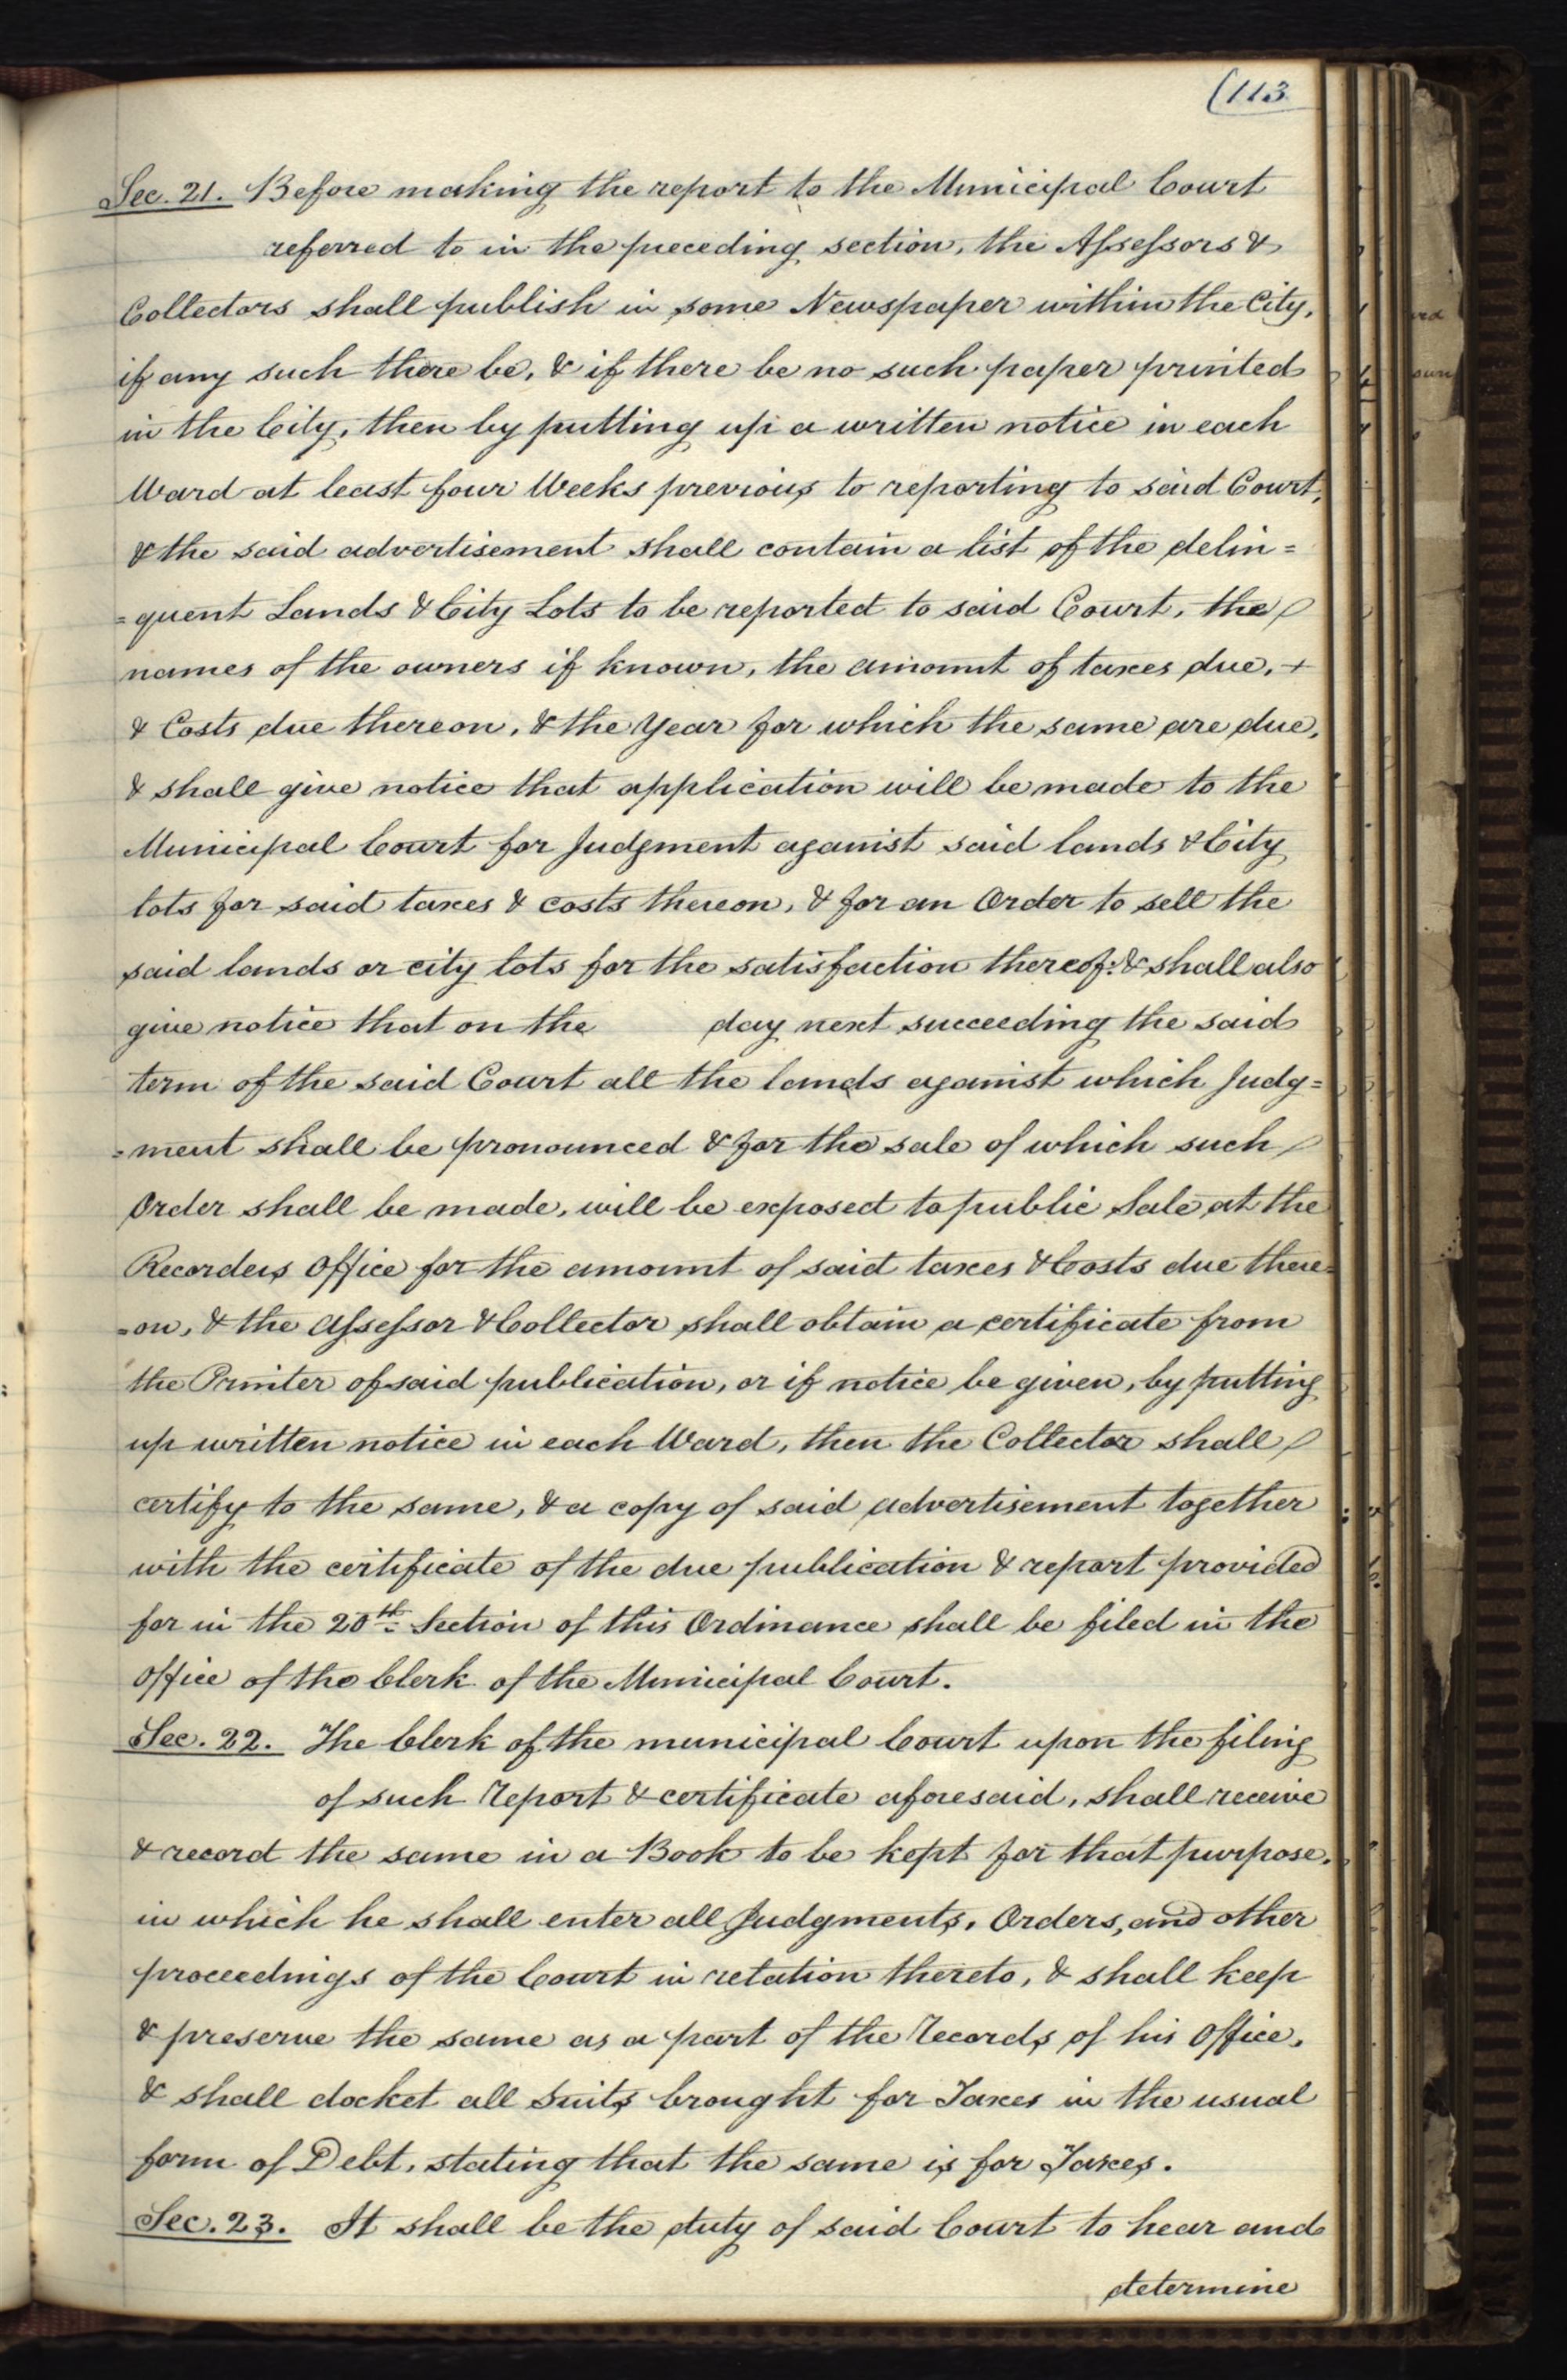 (113
Sec. 21. Before making the report to the Municipal Court
referred to in the preceding section, the Assessors &
Collectors shall publish in some Newspaper within the City,
if any such there be, & if there be no such paper printed
in the City, then by putting up a written notice in each
Ward at least four Weeks previous to reporting to said Court,
& the said advertisement shall contain a list of the delin=
=quent Lands & City Lots to be reported to said Court, the
names of the owners if known, the amount of taxes due, +
& Costs due thereon, & the Year for which the same are due,
& shall give notice that application will be made to the
Municipal Court for Judgment against said lands & City
lots for said taxes & costs thereon, & for an Order to sell the
said lands or city lots for the satisfaction thereof: & shall also
give notice that on the day next succeeding the said
term of the said Court all the lands against which Judg=
=ment shall be pronounced & for the sale of which such
Order shall be made, will be exposed to public Sale at the
Recorders Office for the amount of said taxes & Costs due there=
=on, & the Assessor & Collector shall obtain a certificate from
the Printer of said publication, or if notice be given, by putting
up written notice in each Ward, then the Collector shall
certify to the same, & a copy of said advertisement together
with the certificate of the due publication & report provided
for in the 20th Section of this Ordinance shall be filed in the
Office of the Clerk of the Municipal Court.
Sec. 22. The Clerk of the municipal Court upon the filing
of such Report & certificate aforesaid, shall receive
& record the same in a Book to be kept for that purpose,
in which he shall enter all Judgments, Orders, and other
proceedings of the Court in relation thereto, & shall keep
& preserve the same as a part of the Records of his Office,
& shall docket all Suits brought for Taxes in the usual
form of Debt, stating that the same is for Taxes.
Sec. 23. It shall be the duty of said Court to hear and
determine